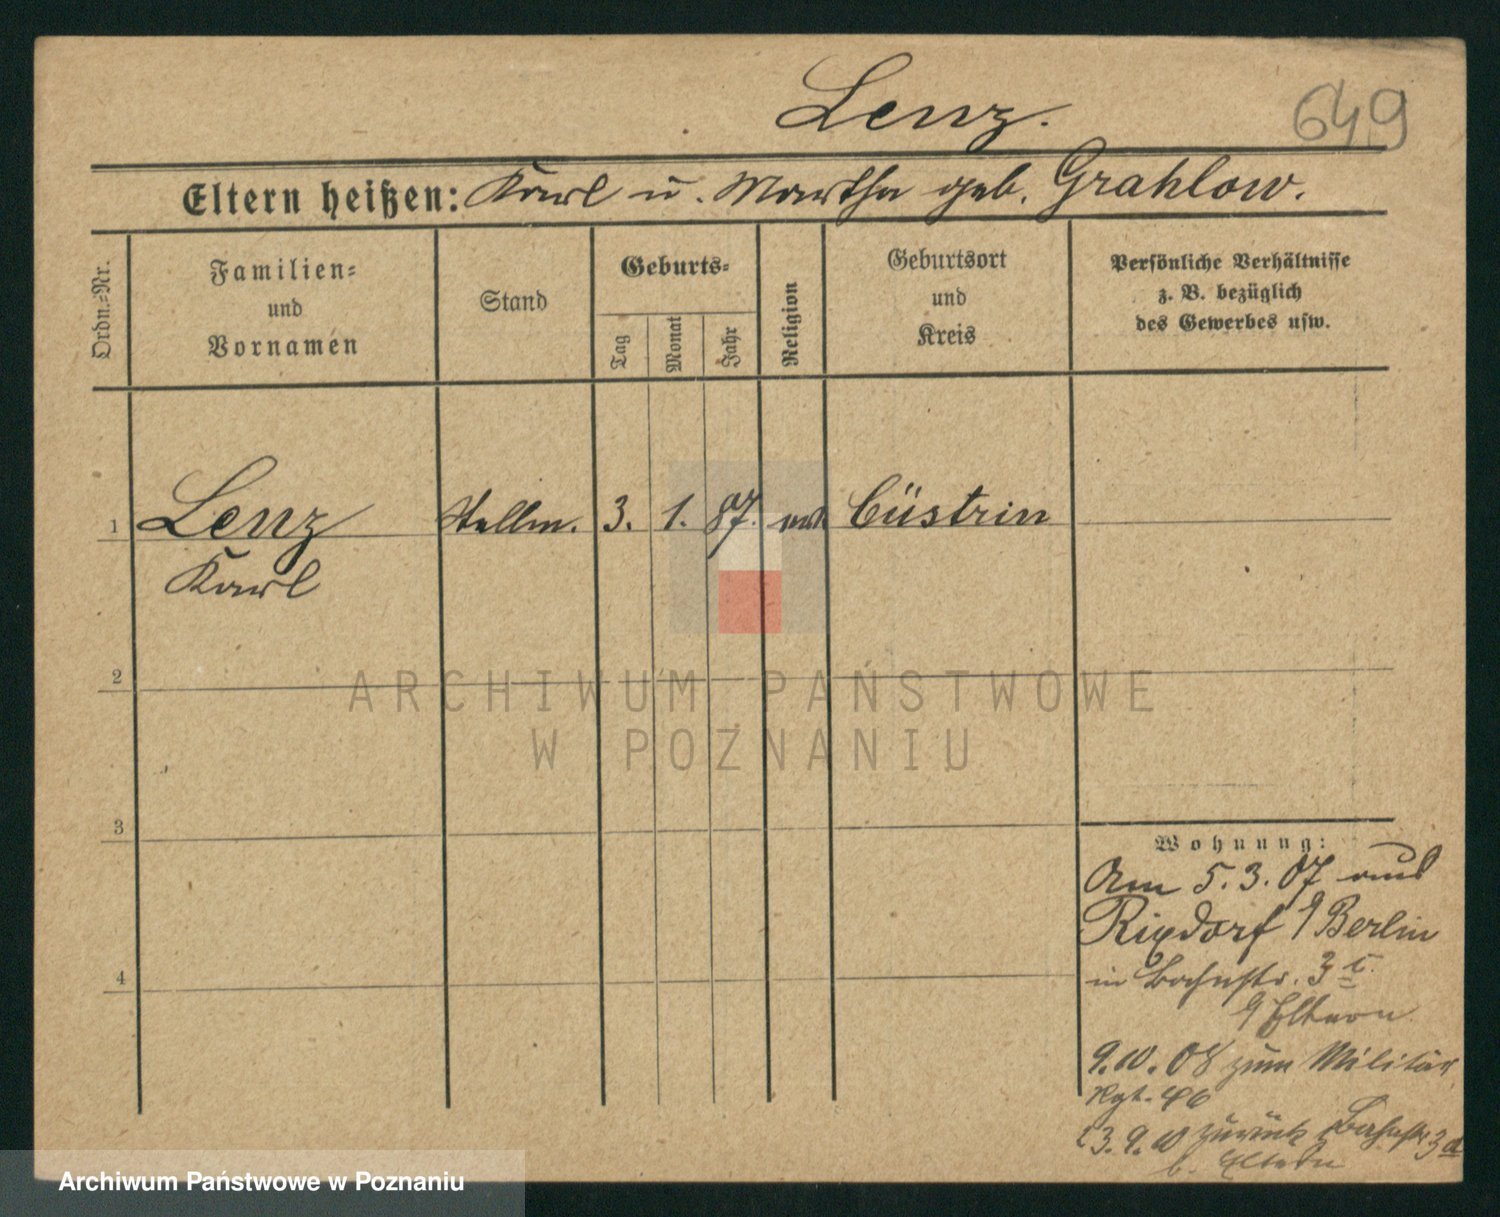 Lenz.
649
Eltern heißen: Karl u. Martha geb. Grahlow.
Ordn.-Nr.
Familien-
und
Vornamen
Stand
Geburts-
Tag
Monat
Jahr
Religion
Geburtsort
und
Kreis
Persönliche Verhältnisse
z. B. bezüglich
des Gewerbes usw.
1 Lenz Stellm. 3. 1. 87. Cüstrin
Karl
2
ARCHIWUM PAŃSTWOWE
W POZNANIU
3
4
Wohnung:
Am 5.3.07 aus
Rixdorf Berlin
in Bahnstr. 3
Eltern
9.10.08 zum Militär
Rgt. 46
23.9.10 zurück Bahnstr 3a
b. Eltern
Archiwum Państwowe w Poznaniu